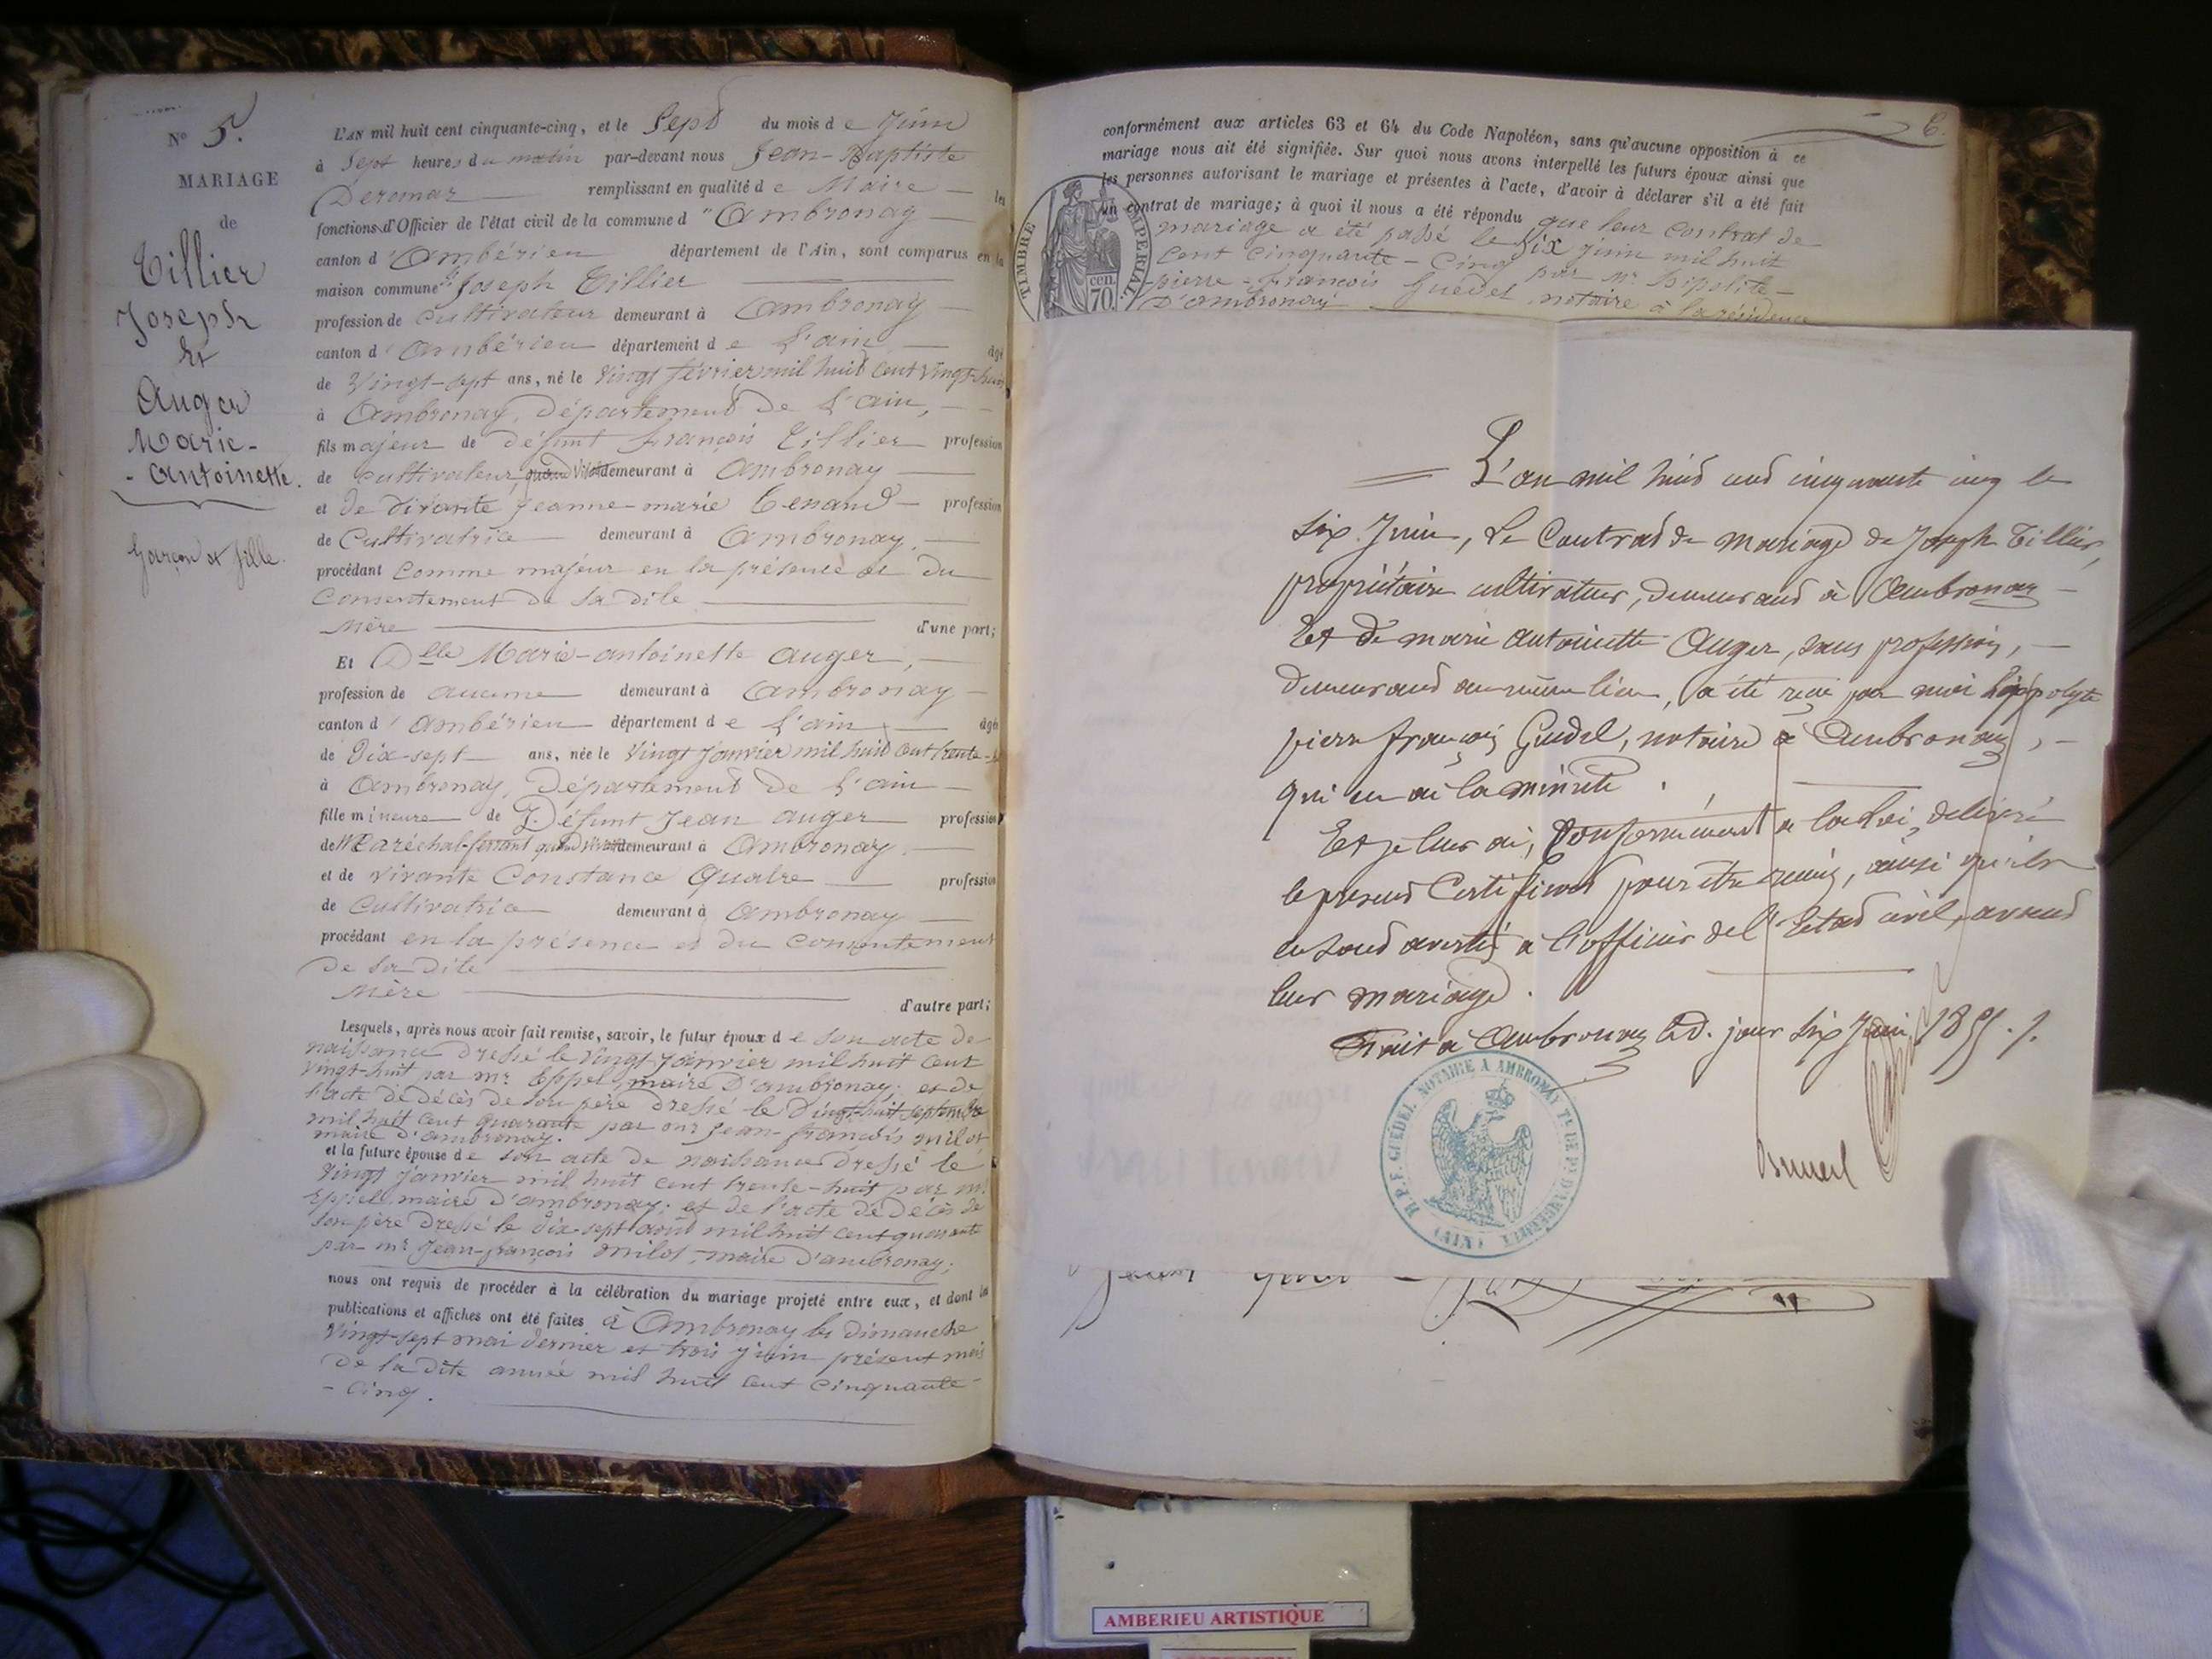 N° 5.
MARIAGE
de
Tillier
Joseph
Et
Auger
Marie-
-Antoinette.
Garçon et fille.
L'AN mil huit cent cinquante-cinq, et le Sept du mois de Juin
à Sept heures du matin par-devant nous Jean-Baptiste
remplissant en qualité de Maire les
fonctions d'Officier de l'état civil de la commune d'Ambronay
canton d'Ambérieu département de l'Ain, sont comparus en la
maison commune Joseph Tillier
profession de cultivateur demeurant à Ambronay
canton d'Ambérieu département de l'ain âgé
de Vingt-sept ans, né le Vingt février mil huit cent Vingt-huit
à Ambronay, département de l'ain,
fils majeur de défunt françois Tillier profession
de Cultivateur, quand vivait demeurant à Ambronay
et de vivante Jeanne-marie Tenand profession
de Cultivatrice demeurant à Ambronay.
procédant comme majeur en la présence et du
consentement de sa dite
Mère d'une part;
Et Dlle Marie-antoinette auger,
profession de aucune demeurant à Ambronay
canton d'Ambérieu département de l'ain âgée
de Dix-sept ans, née le Vingt Janvier mil huit cent trente-
à Ambronay, Département de l'ain
fille mineure de Défunt Jean auger profession
de Maréchal-ferrant quand vivait demeurant à Ambronay.
et de vivante Constance Quatre profession
de Cultivatrice demeurant à Ambronay
procédant en la présence et du consentement
De sa dite
Mère d'autre part;
Lesquels, après nous avoir fait remise, savoir, le futur époux de son acte de
naissance dressé le Vingt Janvier mil huit cent
vingt-huit par mr Eppel, maire D'ambronay; et de
l'acte de décès de son père dressé le Vingt-huit septembre
mil huit cent quarante par mr Jean-françois milot
maire d'ambronay.
et la future épouse de son acte de naissance dressé le
Vingt Janvier mil huit cent trente-huit par mr
Eppel, maire d'ambronay; et de l'acte de décès de
son père dressé le dix-sept août mil huit cent quarante
par mr Jean-françois milot, maire d'ambronay;
nous ont requis de procéder à la célébration du mariage projeté entre eux, et dont les
publications et affiches ont été faites à Ambronay les dimanche
Vingt-sept mai dernier et trois juin présent mois
de la dite année mil huit cent cinquante-
-cinq.
6.
conformément aux articles 63 et 64 du Code Napoléon, sans qu'aucune opposition à ce
mariage nous ait été signifiée. Sur quoi nous avons interpellé les futurs époux ainsi que
les personnes autorisant le mariage et présentes à l'acte, d'avoir à déclarer s'il a été fait
un contrat de mariage; à quoi il nous a été répondu que leur contrat de
mariage a été passé le six juin mil huit
cent cinquante-cinq par mr hipolite-
pierre-françois Guédel, notaire à la résidence
D'ambronay
TIMBRE IMPERIAL
70 cen.
L'an mil huit cent cinquante cinq le
six Juin, Le Contrat de mariage de Joseph Tillier,
propriétaire cultivateur, demeurant à Ambronay
Et de marie antoinette Auger, sans profession,
demeurant au même lieu, a été reçu par moi hippolyte
pierre françois Guédel, notaire à Ambronay,
qui en ai la minute.
Et je leur ai, Conformément à la loi, délivré
le présent Certificat pour être remis, ainsi qu'ils
en sont avertis à l'officier de l'Etat civil, avant
leur mariage.
Fait à Ambronay led. jour six Juin 1855.
H. P. F. GUÉDEL NOTAIRE A AMBRONAY
(AIN)
AMBERIEU ARTISTIQUE